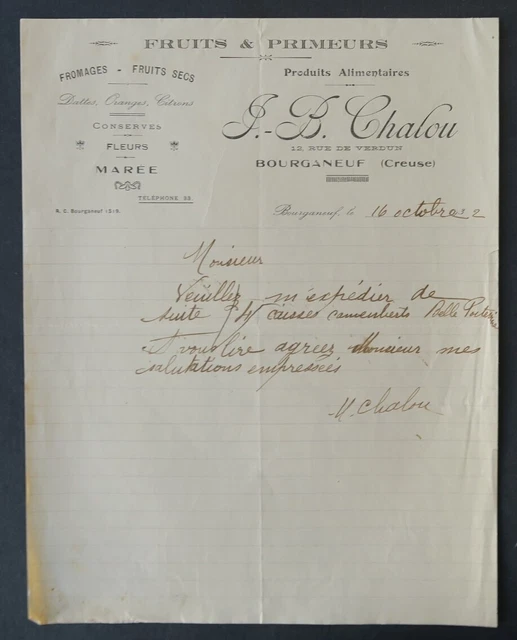 FRUITS & PRIMEURS
FROMAGES - FRUITS SECS
Dattes, Oranges, Citrons
CONSERVES
FLEURS
MARÉE
TÉLÉPHONE 53.
R. C. Bourganeuf 1319.
Produits Alimentaires
J.-B. Chalou
12, RUE DE VERDUN
BOURGANEUF (Creuse)
Bourganeuf, le 16 octobre 32
Monsieur
Veuillez m'expédier de
suite 4 caisses camemberts Belle
A vous lire agréez Monsieur mes
salutations empressées
Chalou